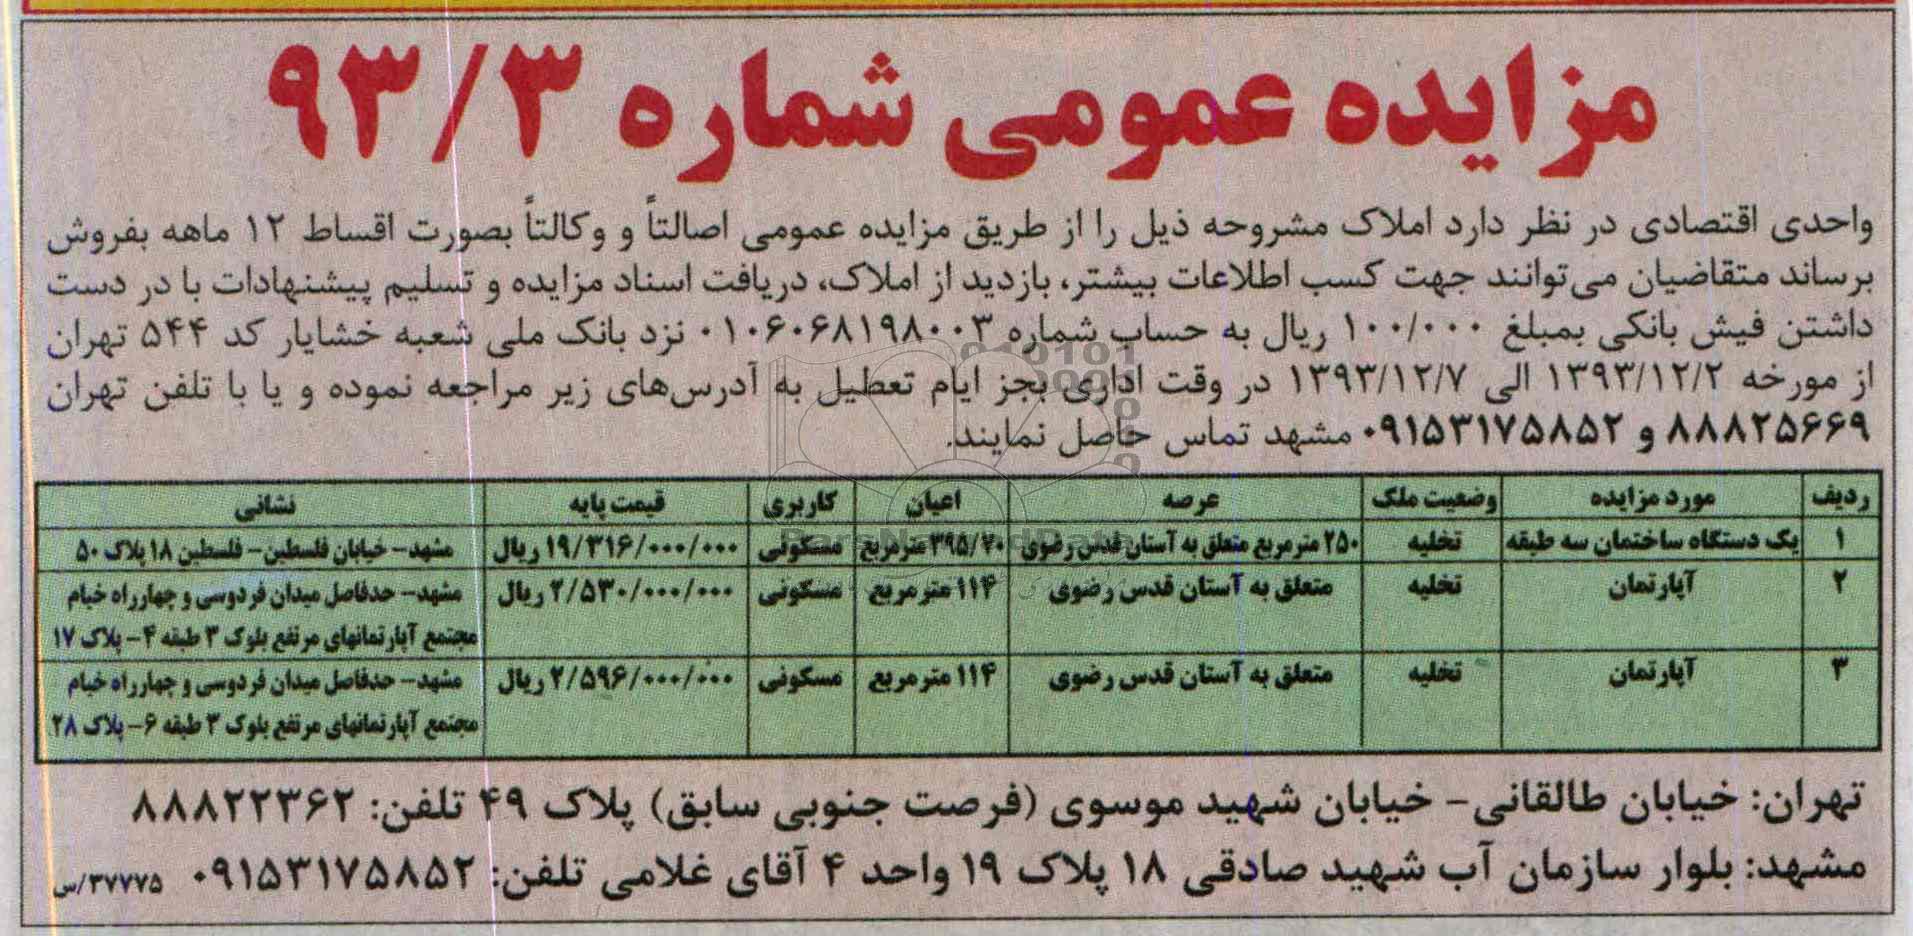 مزایده عمومی شماره ۹۳/۳
واحدی اقتصادی در نظر دارد املاک مشروحه ذیل را از طریق مزایده عمومی اصالتاً و وکالتاً بصورت اقساط ۱۲ ماهه بفروش
برساند متقاضیان می‌توانند جهت کسب اطلاعات بیشتر، بازدید از املاک، دریافت اسناد مزایده و تسلیم پیشنهادات با در دست
داشتن فیش بانکی بمبلغ ۱۰۰/۰۰۰ ریال به حساب شماره ۰۱۰۶۰۶۸۱۹۸۰۰۳ نزد بانک ملی شعبه خشایار کد ۵۴۴ تهران
از مورخه ۱۳۹۳/۱۲/۲ الی ۱۳۹۳/۱۲/۷ در وقت اداری بجز ایام تعطیل به آدرس‌های زیر مراجعه نموده و یا با تلفن تهران
۸۸۸۲۵۶۶۹ و ۰۹۱۵۳۱۷۵۸۵۲ مشهد تماس حاصل نمایند.
ردیف مورد مزایده وضعیت ملک عرصه اعیان کاربری قیمت پایه نشانی
۱ یک دستگاه ساختمان سه طبقه تخلیه ۲۵۰ مترمربع متعلق به آستان قدس رضوی ۳۹۵/۷۰ مترمربع مسکونی ۱۹/۳۱۶/۰۰۰/۰۰۰ ریال مشهد- خیابان فلسطین- فلسطین ۱۸ پلاک ۵۰
۲ آپارتمان تخلیه متعلق به آستان قدس رضوی ۱۱۴ مترمربع مسکونی ۲/۵۳۰/۰۰۰/۰۰۰ ریال مشهد- حدفاصل میدان فردوسی و چهارراه خیام
مجتمع آپارتمانهای مرتفع بلوک ۳ طبقه ۴- پلاک ۱۷
۳ آپارتمان تخلیه متعلق به آستان قدس رضوی ۱۱۴ مترمربع مسکونی ۲/۵۹۶/۰۰۰/۰۰۰ ریال مشهد- حدفاصل میدان فردوسی و چهارراه خیام
مجتمع آپارتمانهای مرتفع بلوک ۳ طبقه ۶- پلاک ۲۸
تهران: خیابان طالقانی- خیابان شهید موسوی (فرصت جنوبی سابق) پلاک ۴۹ تلفن: ۸۸۸۲۲۳۶۲
مشهد: بلوار سازمان آب شهید صادقی ۱۸ پلاک ۱۹ واحد ۴ آقای غلامی تلفن: ۰۹۱۵۳۱۷۵۸۵۲
۳۷۷۷۵/س